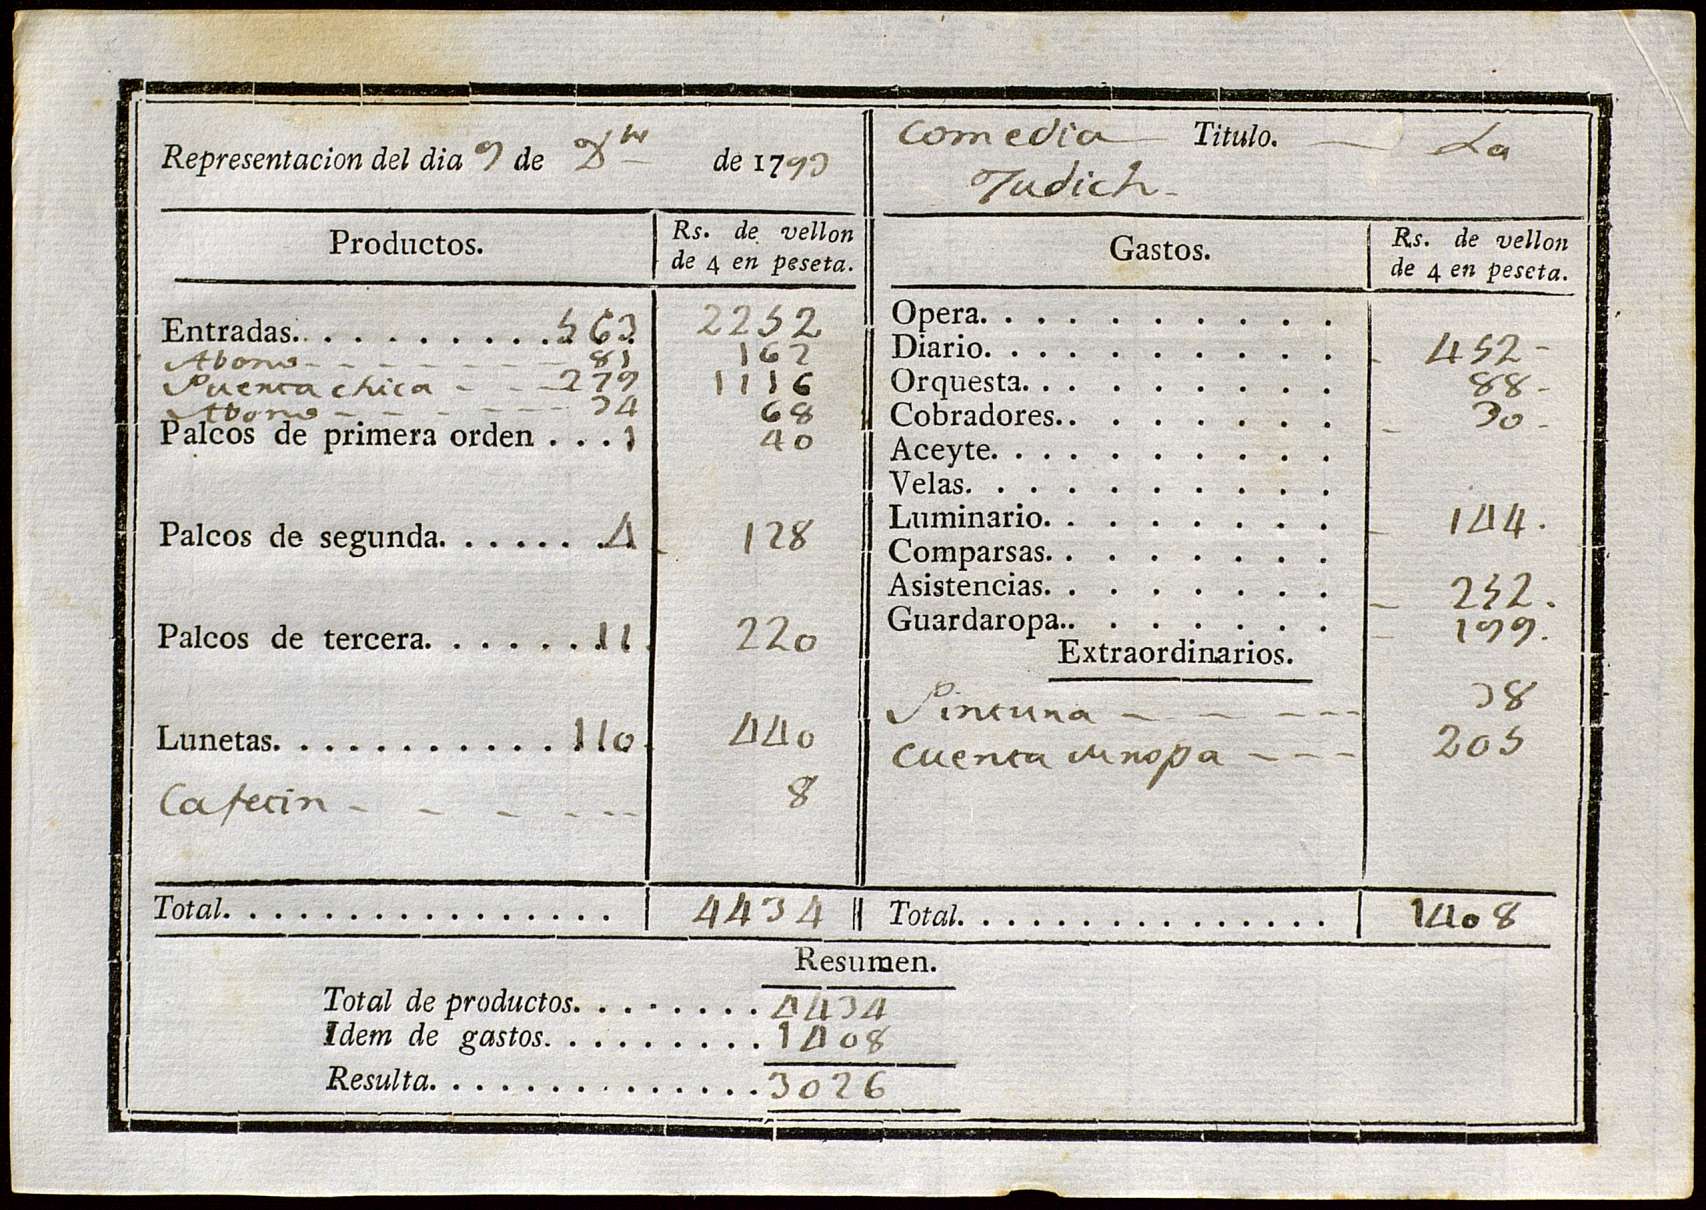 Representacion del dia 9 de de 1793
Productos.
Rs. de vellon
de 4 en peseta.
Entradas. . . . . . . . . . 563 2252
Abono - - - - - - 81 162
Puerta chica - - - 279 1116
Abono - - - - - - 34 68
Palcos de primera orden . . . 1 40
Palcos de segunda. . . . . . . 4 128
Palcos de tercera. . . . . . . 11 220
Lunetas. . . . . . . . . . . . 110 440
Cafetin - - - - - - 8
Total. . . . . . . . . . . . . . . . 4434
Comedia Titulo. — La
Judith -
Gastos.
Rs. de vellon
de 4 en peseta.
Opera. . . . . . . . . .
Diario. . . . . . . . . . 452 -
Orquesta. . . . . . . . . 88 -
Cobradores.. . . . . . . 30 -
Aceyte. . . . . . . . . .
Velas. . . . . . . . . .
Luminario. . . . . . . . 144 .
Comparsas. . . . . . . .
Asistencias. . . . . . . . 252 .
Guardaropa.. . . . . . . 199 .
Extraordinarios.
Pintura - - - - - 38
Cuenta de ropa - - - 205
Total. . . . . . . . . . . . . . . 1408
Resumen.
Total de productos. . . . . . . . 4434
Idem de gastos. . . . . . . . . 1408
Resulta. . . . . . . . . . . . . . 3026